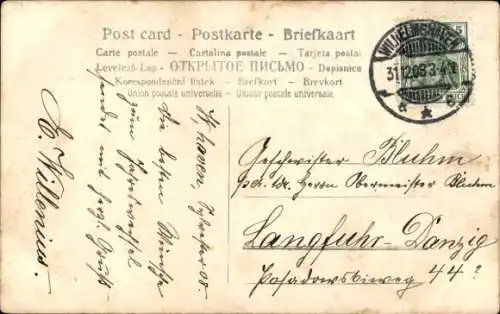 Post card - Postkarte - Briefkaart
Carte postale - Cartolina postale - Tarjeta postal
Levelező-Lap - ОТКРЫТОЕ ПИСЬМО - Dopisnice
Korespondenční lístek - Brefkort - Brevkort
Union postale universelle - Unione postale universale
WILHELMSHAVEN
31.12.08.3-4N
W'haven, Sylvester 08.
Die besten Wünsche
zum Jahreswechsel
sendet mit herzl. Gruß
A. Willenius.
Geschwister Bluhm
Herrn Obermeister Bluhm
Langfuhr-Danzig
Posadowskiweg 44?